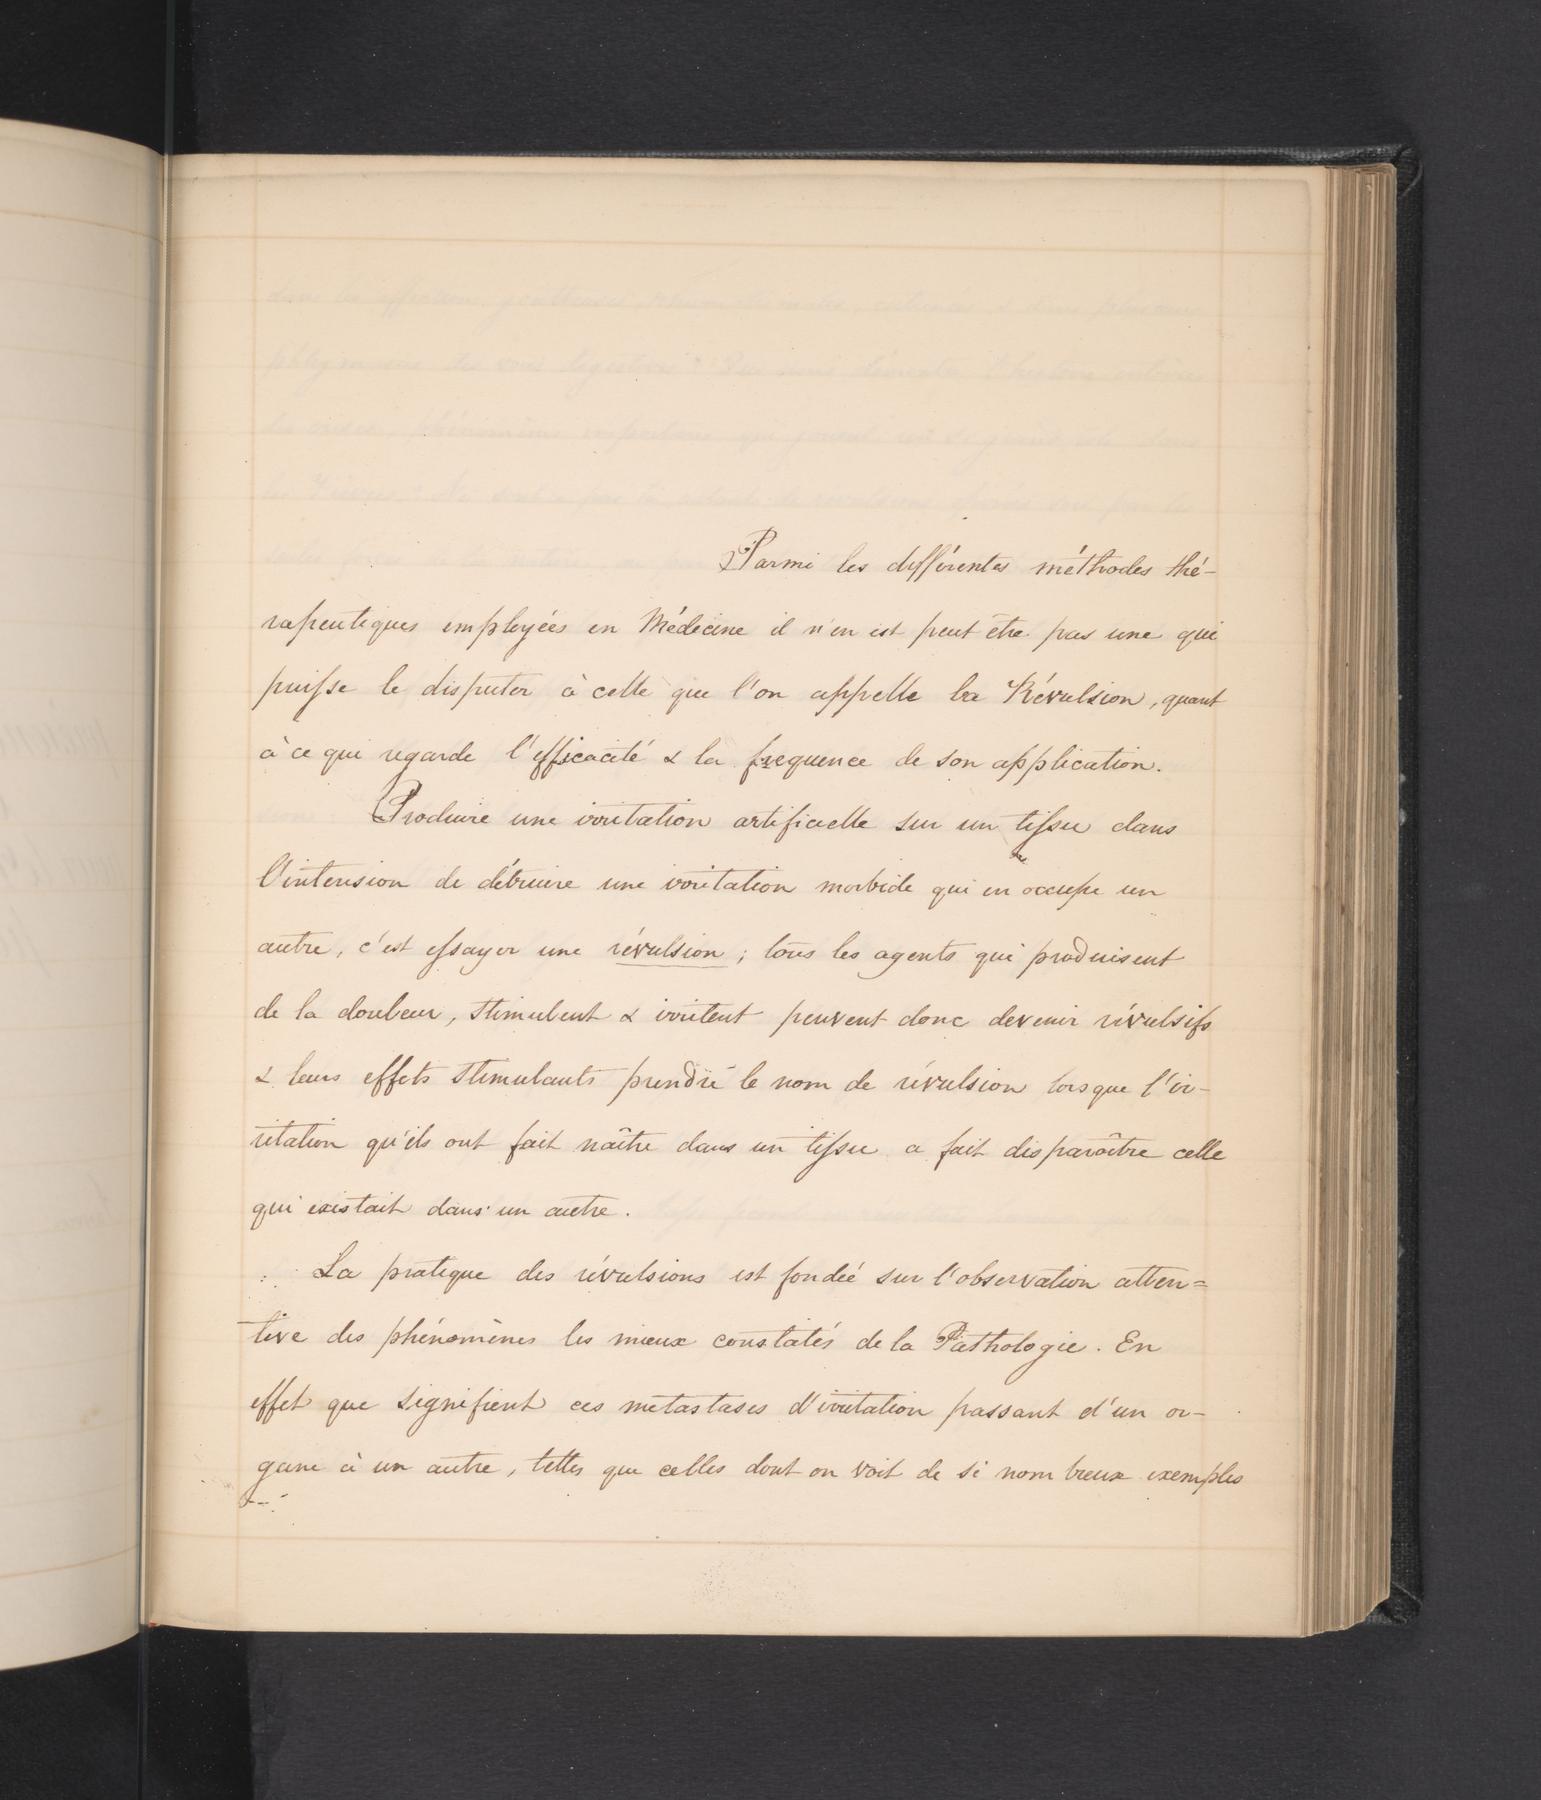 Parmi les différentes méthodes thé-
rapeutiques employées en Médecine il n'en est peut être pas une qui
puisse le disputer à celle que l'on appelle la Révulsion, quant
à ce qui regarde l'efficacité & la frequence de son application.
Produire une irritation artificielle sur un tissu dans
l'intension de détruire une irritation morbide qui en occupe un
autre, c'est essayer une révulsion; tous les agents qui produisent
de la douleur, stimulent & irritent peuvent donc devenir révulsifs
& leurs effets stimulants prendre le nom de révulsion lorsque l'ir-
ritation qu'ils ont fait naître dans un tissu a fait disparaître celle
qui existait dans un autre.
La pratique des révulsions est fondée sur l'observation atten=
tive des phénomènes les mieux constatés de la Pathologie. En
effet que signifient ces métastases d'irritation passant d'un or-
gane à un autre, telles que celles dont on voit de si nombreux exemples